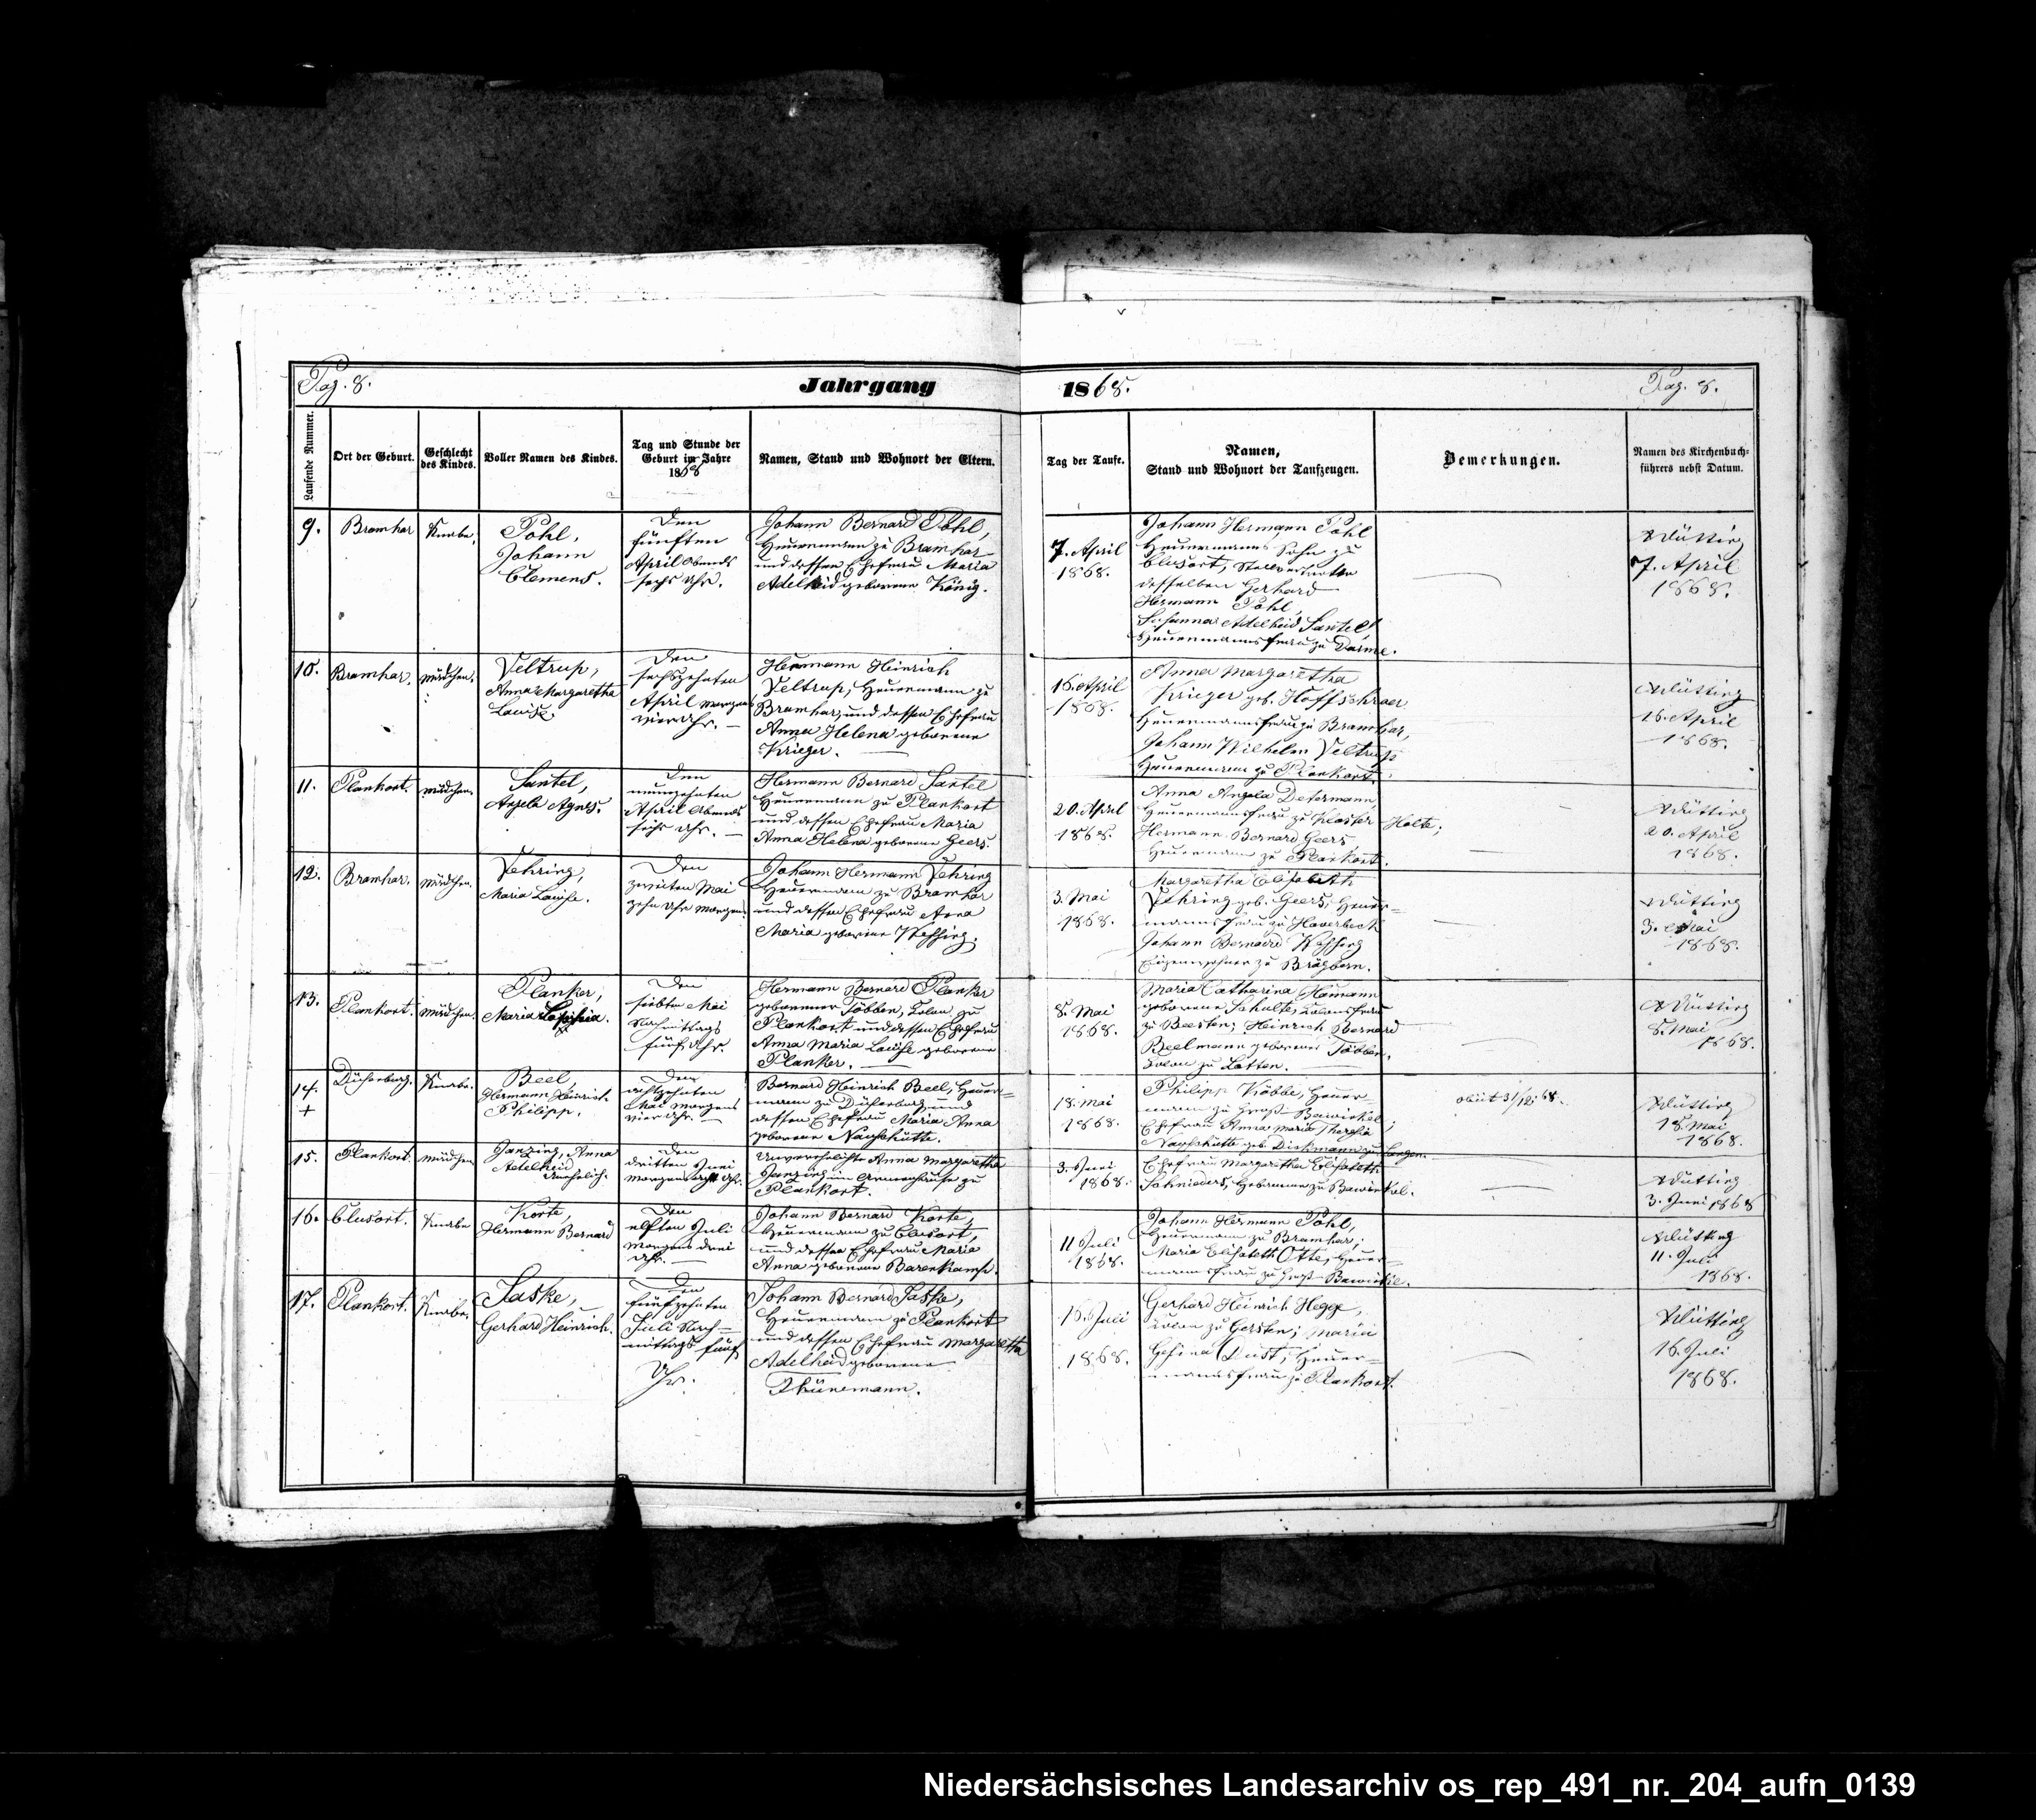 Pag. 8.
Jahrgang
1868.
Pag. 8.
Laufende Nummer.
Ort der Geburt.
Geschlecht
des Kindes.
Voller Namen des Kindes.
Tag und Stunde der
Geburt im Jahre
1868
Namen, Stand und Wohnort der Eltern.
Tag der Taufe.
Namen,
Stand und Wohnort der Taufzeugen.
Bemerkungen.
Namen des Kirchenbuch-
führers nebst Datum.
9.
Bramhar
Knabe.
Pohl,
Johann
Clemens.
Den
fünften
April Abends
sechs Uhr.
Johann Bernard Pohl,
Heuermann zu Bramhar
und dessen Ehefrau Maria
Adelheid geborene König.
7. April
1868.
Johann Hermann Pohl
Heuermanns Sohn zu
Clusort, Stellvertreter
desselben Gerhard
Hermann Pohl,
Susanna Adelheid Santel
Heuermannsfrau zu Darme.
7. April
1868.
10.
Bramhar.
Mädchen.
Veltrup,
Anna Margaretha
Louise.
Den
sechszehnten
April Morgens
vier Uhr. —
Hermann Heinrich
Veltrup, Heuermann zu
Bramhar, und dessen Ehefrau
Anna Helena geborene
Krieger. —
16. April
1868.
Anna Margaretha
Krieger geb. Hoffschroer
Heuermannsfrau zu Bramhar,
Johann Wilhelm Veltrup
Heuermann zu Plankort.
16. April
1868.
11.
Plankort.
Mädchen.
Santel,
Angela Agnes.
Den
neunzehnten
April Abends
sechs Uhr. —
Hermann Bernard Santel
Heuermann zu Plankort
und dessen Ehefrau Maria
Anna Helena geborene Geers.
20. April
1868.
Anna Angela Determann,
Heuermannsfrau zu Kloster Holte;
Hermann Bernard Geers
Heuermann zu Plankort.
20. April
1868.
12.
Bramhar.
Mädchen.
Vehring,
Maria Louise.
Den
zweiten Mai
zehn Uhr Morgens.
Johann Hermann Vehring
Heuermann zu Bramhar
und dessen Ehefrau Anna
Maria geborene
3. Mai
1868.
Margaretha Elisabeth
Vehring geb. Geers, Heuer-
mannsfrau zu Haverbeck
Johann Bernard
zu Brögbern.
3. Mai
1868.
13.
Plankort.
Mädchen.
Planker,
Maria
Den
siebten Mai
Nachmittags
fünf Uhr.
Hermann Bernard Planker
geborener Többen, Colon zu
Plankort und dessen Ehefrau
Anna Maria Louise geborene
Planker. —
8. Mai
1868.
Maria Catharina Hömann
geborene Schulte, Colonsfrau
zu Beesten; Heinrich Bernard
Beelmann geborener Többen,
Colon zu Lotten.
8. Mai
1868.
14.
+
Knabe.
Beel,
Hermann Heinrich
Philipp.
Den
achtzehnten
Mai Morgens
vier Uhr. —
Bernard Heinrich Beel, Heuer-
mann zu und
dessen Ehefrau Maria Anna
geborene
18. Mai
1868.
Philipp Köbbe, Heuer-
mann zu Groß Bawinkel;
Ehefrau Anna Maria Theresia
geb. Diekmann zu Langen.
obiit 3/12 68.
18. Mai
1868.
15.
Plankort.
Mädchen
Janzing, Anna
Adelheid
Unehelich.
Den
dritten Juni
Morgens acht Uhr.
Unverehelichte Anna Margaretha
Janzing im Armenhause zu
Plankort.
3. Juni
1868.
Ehefrau Margaretha Elisabeth
Schnieders, Hebamme zu Bawinkel.
3. Juni 1868
16.
Clusort.
Knabe
Korte,
Hermann Bernard
Den
elften Juli
Morgens drei
Uhr. —
Johann Bernard Korte,
Heuermann zu Clusort,
und dessen Ehefrau Maria
Anna geborene Barenkamp.
11 Juli
1868.
Johann Hermann Pohl,
Heuermann zu Bramhar;
Maria Elisabeth Otte, Heuer-
mannsfrau zu Groß Bawinkel.
11. Juli
1868.
17.
Plankort.
Knabe.
Saske,
Gerhard Heinrich.
Den
fünfzehnten
Juli Nach-
mittags fünf
Uhr.
Johann Bernard Saske,
Heuermann zu Plankort
und dessen Ehefrau Margaretha
Adelheid geborene
Thünemann.
Juli
1868.
Gerhard Heinrich Hegge,
Colon zu Gersten; Maria
Gesina Dust, Heuer-
mannsfrau zu Plankort.
16. Juli
1868.
Niedersächsisches Landesarchiv os_rep_491_nr._204_aufn_0139